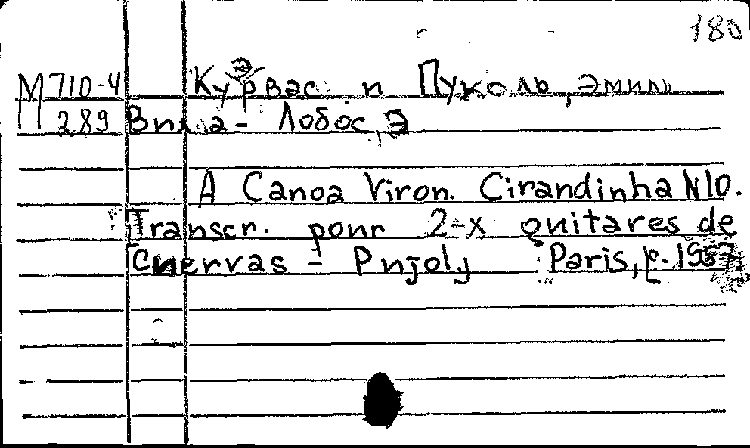 180
М710-4 Куэрвас и Пуколь, Эмиль
М289 Вилла-Лобос, Э
A Canoa Viron. Cirandinha N10.
Transcr. pour 2-x guitares de
Cuervas - Pujoly Paris, c. 1957